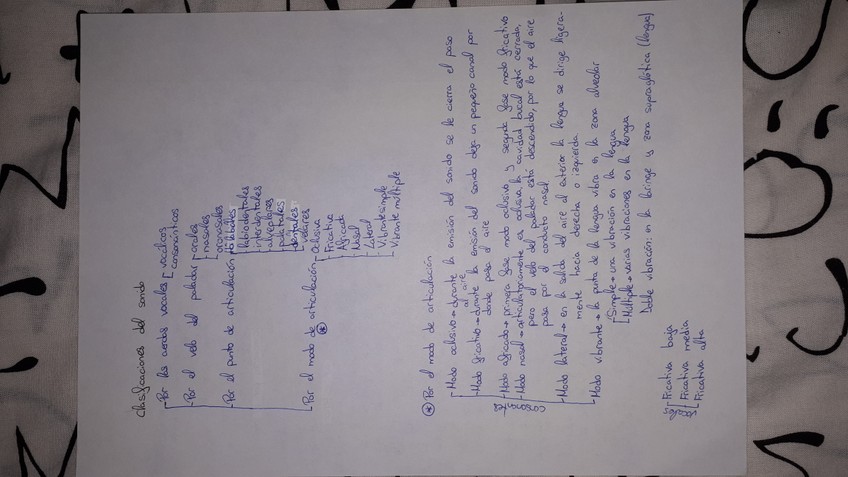 Clasificaciones del sonido
- Por las cuerdas vocales [ vocálicos
consonánticos
- Por el velo del paladar [ orales
nasales
oronasales
- Por el punto de articulación [ bilabiales
labiodentales
interdentales
alveolares
palatales
dentales
velares
- Por el modo de articulación [ Oclusiva
Fricativa
Africada
Nasal
Lateral
Vibrante simple
Vibrante múltiple
* Por el modo de articulación
- Modo oclusivo → durante la emisión del sonido se le cierra el paso
al aire
- Modo fricativo → durante la emisión del sonido deja un pequeño canal por
donde pasa el aire
- Modo africado → primera fase modo oclusivo y segunda fase modo fricativo
- Modo nasal → articulatoriamente es oclusiva la cavidad bucal está cerrada,
pero el velo del paladar está descendido, por lo que el aire
pasa por el conducto nasal
- Modo lateral → en la salida del aire al exterior la lengua se dirige ligera-
mente hacia derecha o izquierda
- Modo vibrante → la punta de la lengua vibra en la zona alveolar
[ Simple → una vibración en la lengua
Múltiple → varias vibraciones en la lengua
Doble vibración: en la laringe y zona supraglótica (lengua)
[ Fricativa baja
Fricativa media
Fricativa alta